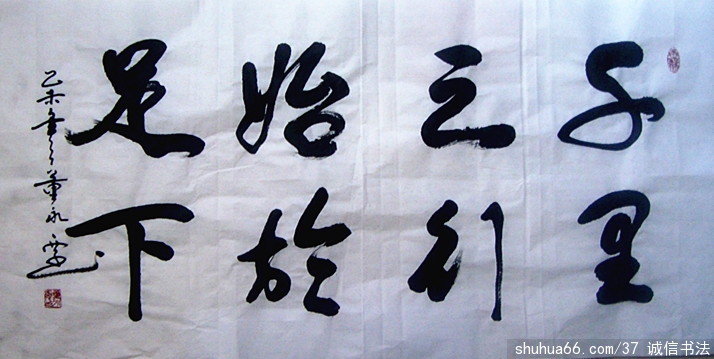 千里
之行
始於
足下
乙未年
shuhua66.com/37 诚信书法